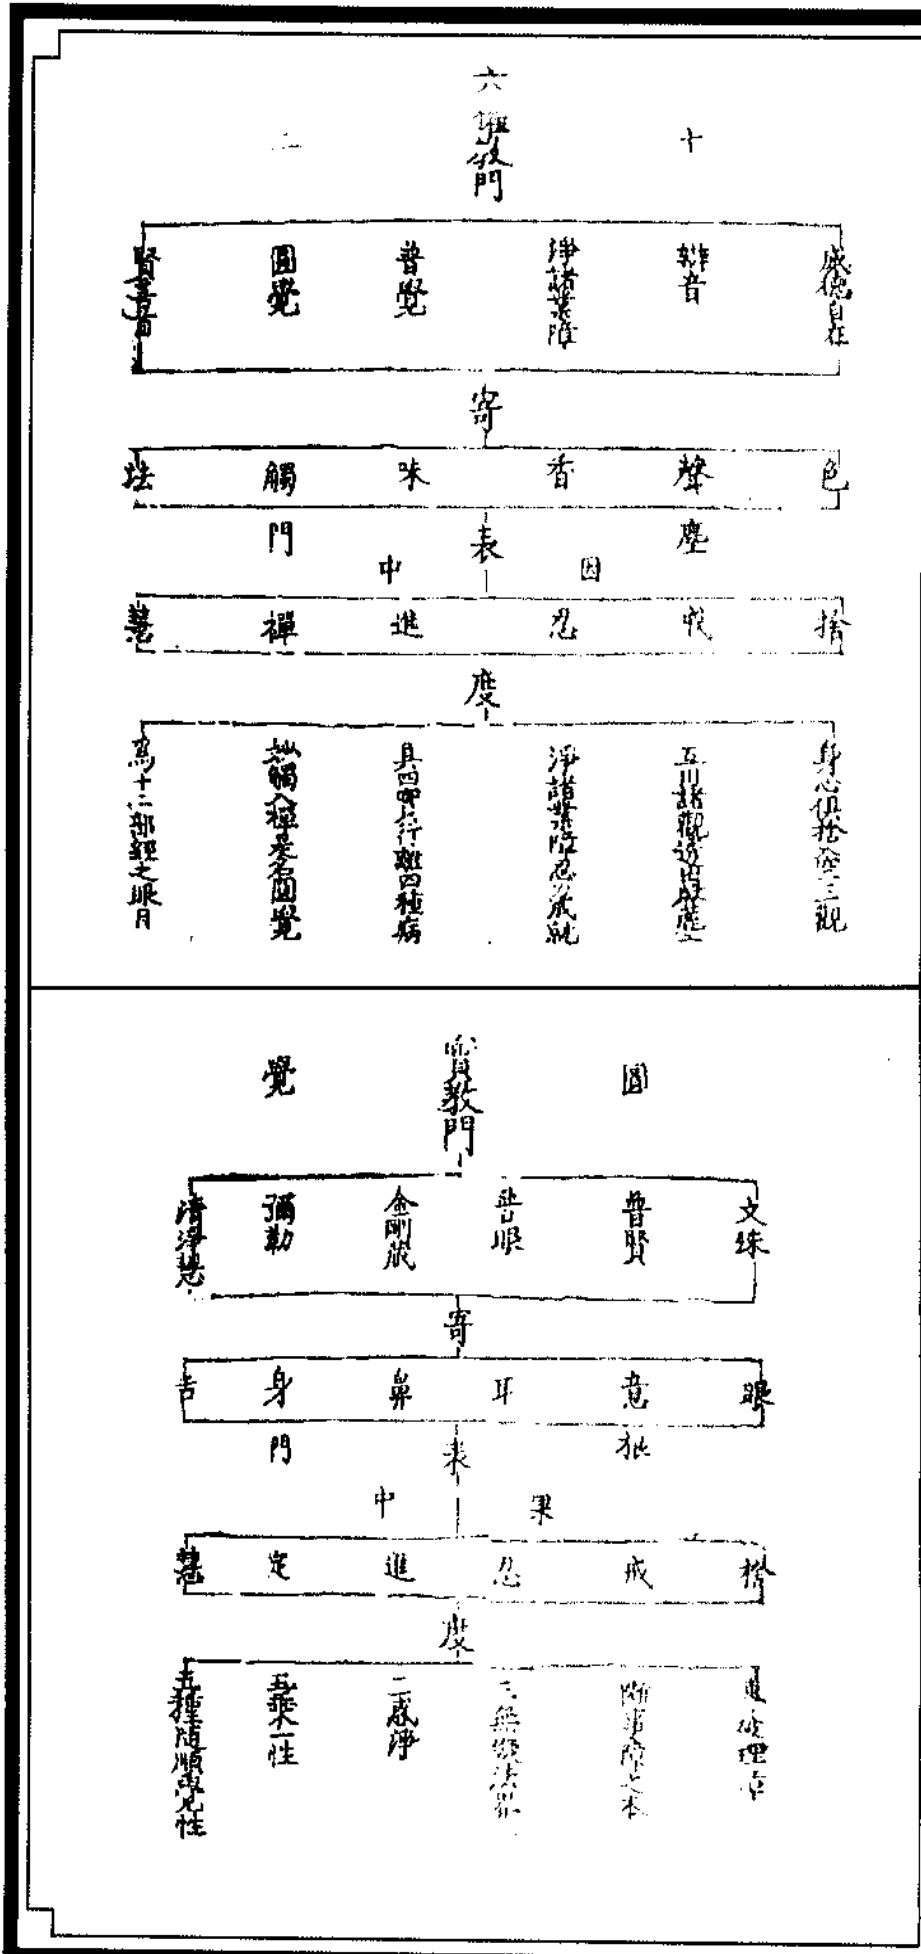 十
六權教門
二
威德自在
辯音
淨諸業障
普覺
圓覺
賢善首
寄
色
聲
香
味
觸
法
塵
表
門
因
中
捨
戒
忍
進
禪
慧
度
身心俱捨證三觀
淨諸業障忍成就
妙觸入禪是名圓覺
為十二部經之眼目
圓
實教門
覺
文殊
普賢
普眼
金剛藏
彌勒
清淨慧
寄
眼
意
耳
鼻
身
舌
根
表
門
果
中
捨
戒
忍
進
定
慧
度
斷事障之本
三無礙法界
二感淨
五乘一性
五種隨順覺性